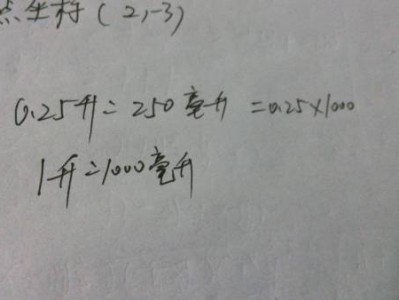 点坐标(2,-3)
0.25升=250毫升=0.25×1000
1升=1000毫升